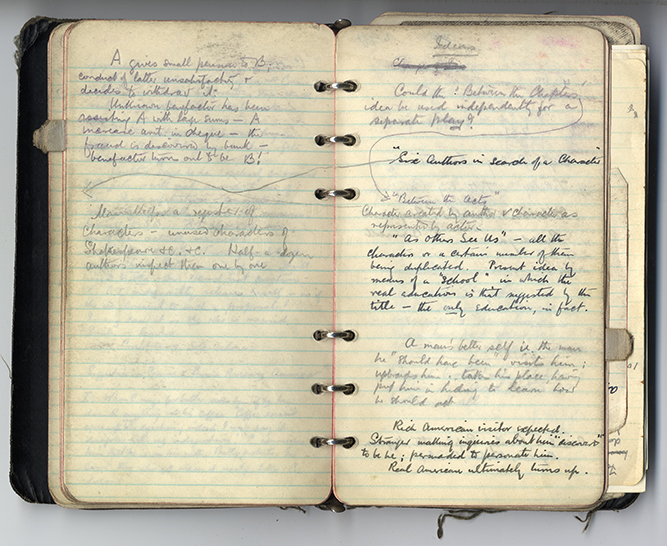 A gives small pension to B;
conduct of latter unsatisfactory &
decides to withdraw it.
Unknown benefactor has been
assisting A with large sums — A
mistake sent in cheque — the
fraud is discovered by bank —
benefactor turns out to be B!
for a registry of
Characters — unused characters of
Shakespeare &c. &c. Half-a-dozen
authors inspect them one by one
Ideas
Could the "Between the Chapters"
idea be used independently for a
separate play?
"Six Authors in Search of a Character"
"Between the Acts"
Character created by author & character as
represented by actor.
"As Others See Us" — all the
characters or a certain number of them
being duplicated. Present idea by
means of a "School" in which the
real education is that suggested by the
title — the only education, in fact.
A man's better self i.e. the man
he "should have been" visits him;
upbraids him, takes his place, having
put him in hiding to learn how
he should act
Rich American visitor expected.
Stranger making inquiries about him "discovered"
to be he; persuaded to personate him.
Real American ultimately turns up.